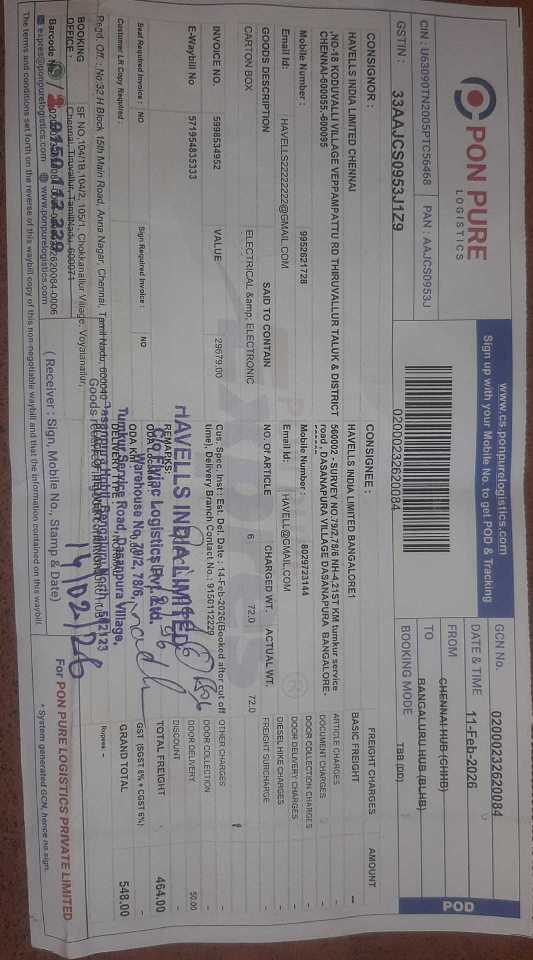 PON PURE
LOGISTICS
www.cs.ponpurelogistics.com
Sign up with your Mobile No. to get POD & Tracking
CIN : U63090TN2005PTC56468 PAN : AAJCS0953J
GSTIN : 33AAJCS0953J1Z9
02000232620084
GCN No. 02000232620084
DATE & TIME 11-Feb-2026
FROM CHENNAI HUB (CHHB)
TO BANGALURU HUB (BLHB)
BOOKING MODE TBB (DD)
POD
CONSIGNOR :
HAVELLS INDIA LIMITED CHENNAI
,NO-18 KODUVALLI VILLAGE VEPPAMPATTU RD THIRUVALLUR TALUK & DISTRICT
CHENNAI-600055.-600095
Mobile Number : 9952621728
Email Id : HAVELLS2222222@GMAIL.COM
CONSIGNEE :
HAVELLS INDIA LIMITED BANGALORE1
560002 -SURVEY NO.79/2,78/6 NH-4,21ST KM tumkur service
road , DASANAPURA VILLAGE DASANAPURA BANGALORE-
Mobile Number : 8029723144
Email Id : HAVELL@GMAIL.COM
GOODS DESCRIPTION SAID TO CONTAIN NO. OF ARTICLE CHARGED WT. ACTUAL WT.
CARTON BOX ELECTRICAL &amp; ELECTRONIC 6 72.0 72.0
INVOICE NO. 5998534952 VALUE 29679.00
E-Waybill No 571954835333
Cus. Spec. Inst : Est. Del. Date : 14-Feb-2026(Booked after cut off
time), Delivery Branch Contact No. : 9150112229
REMARKS:
Seal Required Invoice : NO Sign Required Invoice : NO
Customer LR Copy Required :
FREIGHT CHARGES AMOUNT
BASIC FREIGHT -
ARTICLE CHARGES
DOCUMENT CHARGES
DOOR COLLECTION CHARGES
DOOR DELIVERY CHARGES
DIESEL HIKE CHARGES
FREIGHT SURCHARGE
OTHER CHARGES
DOOR COLLECTION -
DOOR DELIVERY 50.00
DISCOUNT -
TOTAL FREIGHT 464.00
GST (SGST 6% + CGST 6%)
GRAND TOTAL 548.00
Rupees: -
HAVELLS INDIA LIMITED
C/o Flyjac Logistics Pvt. Ltd.
Warehouse No. 79/2, 78/6,
Tumkur Service Road, Dasanpura Village,
Dasanpura Hobli, Bengaluru North - 562123
14/02/26
Regd. Off. : No:32 H Block, 15th Main Road, Anna Nagar, Chennai, Tamil Nadu, 600040
BOOKING OFFICE : SF NO,104/1B,104/2, 105/1, Chokkanallur Village, Voyalanallur,
Chennai, Tiruvallur, Tamilnadu, 600071
Barcode No
9150 112 229
expres@ponpurelogistics.com www.ponpurelogistics.com
( Receiver : Sign, Mobile No., Stamp & Date)
For PON PURE LOGISTICS PRIVATE LIMITED
* System generated GCN, hence no sign.
The terms and conditions set forth on the reverse of this waybill copy of this non-negotiable waybill and that the information contained on this waybill.